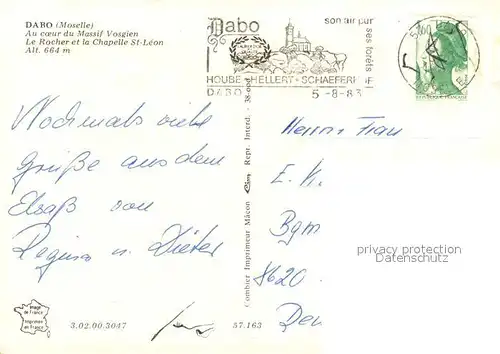 DABO (Moselle)
Au cœur du Massif Vosgien
Le Rocher et la Chapelle St-Léon
Alt. 664 m
Dabo
son air pur
ses forêts
HOUBE - HELLERT - SCHAEFERHOF
DABO 5-8-83
Nochmals viele
Grüße aus dem
Elsaß von
Regina u. Dieter
Combier Imprimeur Mâcon
Repr. Interd.
Herrn Frau
E. K.
Bgm
8620
privacy protection
Datenschutz
Image de France
Imprimée en France
3.02.00.3047
57.163